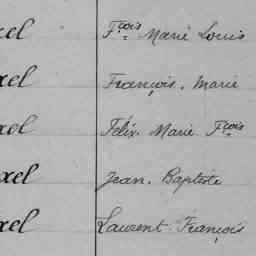 xel Fçois Marie Louis
xel François. Marie
xel Félix. Marie Fçois
xel Jean. Baptiste
xel Laurent. François